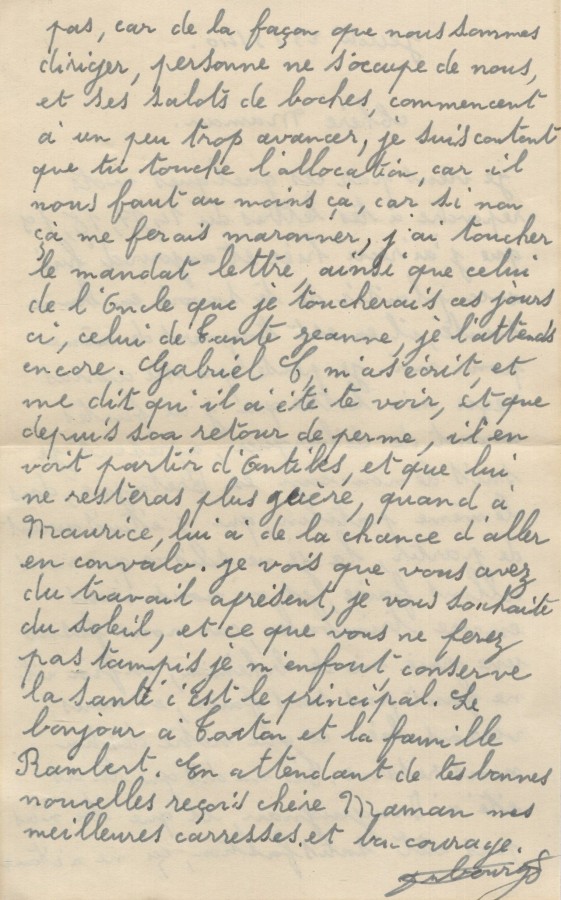 pas, car de la façon que nous sommes
diriger, personne ne s'occupe de nous,
et ses salots de boches, commencent
à un peu trop avancer, je suis content
que tu touche l'allocation, car il
nous faut au moins çà, car si non
çà me ferais maronner, j'ai toucher
le mandat lettre, ainsi que celui
de l'Oncle que je toucherais ces jours
ci, celui de Tante Jeanne, je l'attends
encore. Gabriel m'as écrit, et
me dit qu'il a été te voir, et que
depuis son retour de perme, il en
voit partir d'Antibes, et que lui
ne resteras plus guère, quand à
Maurice, lui a de la chance d'aller
en convalo. je vois que vous avez
du travail aprésent, je vous souhaite
du soleil, et ce que vous ne ferez
pas tampis je m'enfout, conserve
la santé c'est le principal. Le
bonjour à et la famille
Rambert. En attendant de tes bonnes
nouvelles reçois chère Maman mes
meilleures carresses. et bon courage.